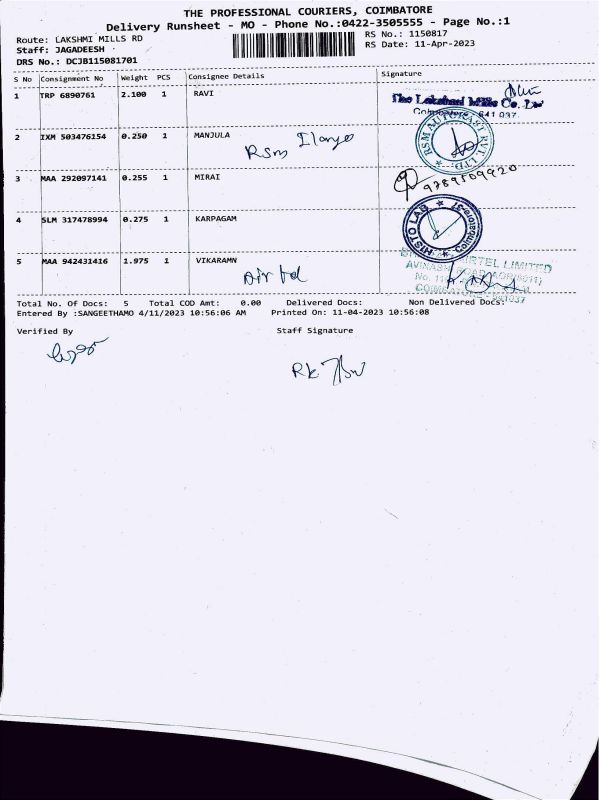 THE PROFESSIONAL COURIERS, COIMBATORE
Delivery Runsheet - MO - Phone No.:0422-3505555 - Page No.:1
Route: LAKSHMI MILLS RD
RS No.: 1150817
Staff: JAGADEESH
RS Date: 11-Apr-2023
DRS No.: DCJB115081701
S No Consignment No Weight PCS Consignee Details Signature
1 TRP 6890761 2.100 1 RAVI
The Lakshmi Mills Co. Ltd
Coimbatore - 641 037.
2 IXM 503476154 0.250 1 MANJULA
Rsm
RSM AUTOKAST PVT. LTD.
3 MAA 292097141 0.255 1 MIRAI
9789509920
4 SLM 317478994 0.275 1 KARPAGAM
HISTO LAB Coimbatore
5 MAA 942431416 1.975 1 VIKARAMN
Airtel
AIRTEL LIMITED
AVINASHI ROAD
COIMBATORE - 641037
Total No. Of Docs: 5 Total COD Amt: 0.00 Delivered Docs: Non Delivered Docs:
Entered By :SANGEETHAMO 4/11/2023 10:56:06 AM Printed On: 11-04-2023 10:56:08
Verified By Staff Signature